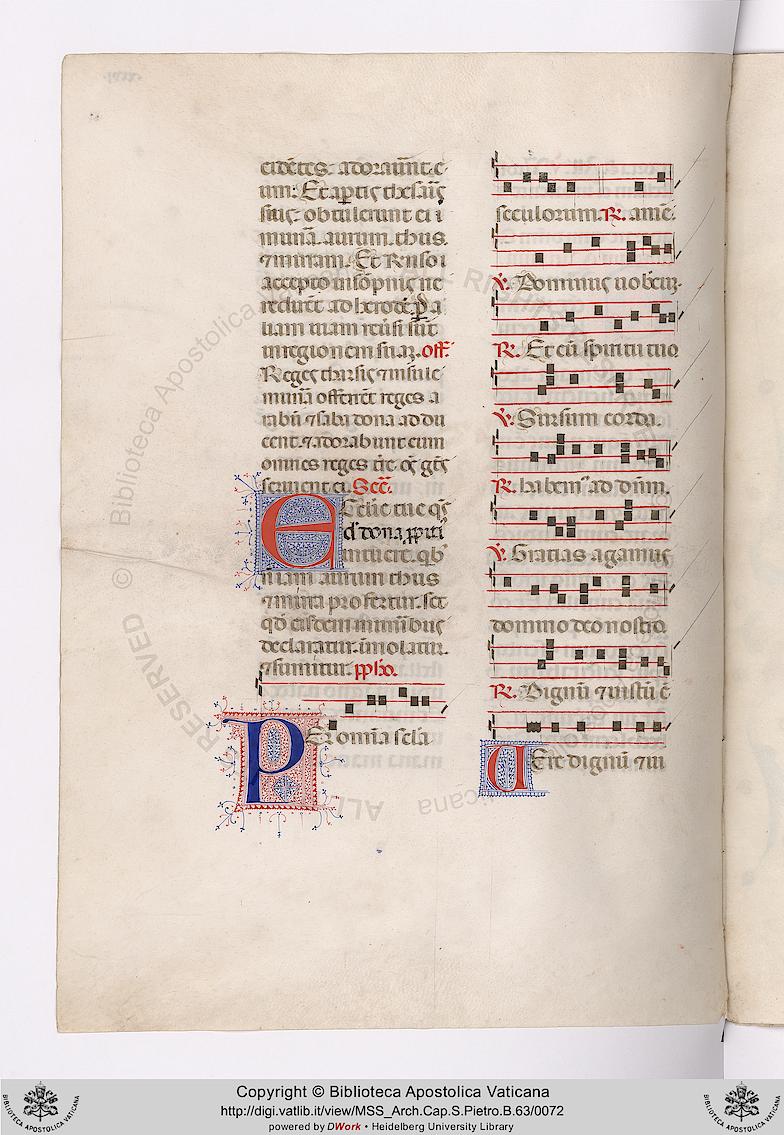 cidētes. adorauīnt. e
um: Et aꝑtis thesaur̄
suis. obtulerunt ei i
munā. aurum. thus.
⁊ miram. Et rn̄so i
accepto insōpnis ne
redirēt ad herodē. ꝑ a
liam uiam reuˢi sūt
in regionem suaꝫ. off.
Reges tharsis ⁊ insule
munā offerēt. reges a
rabū ⁊ saba dona addu
cent. ⁊ adorabunt eum
omnes reges t̄re. oēs gētes
seruient ei. Sec̄.
Ecclīe tue qs̄
d̄. dona ꝓpiti
intuere. qb̄
n iam aurum thus
⁊ mirra profertur. sed
qd̄ eisdem munībus
declaratur. īmolatur.
⁊ sumitur. ꝑꝑħo.
Per omīa scla
seculorum. ℟. amē.
℣. Dominus uobcū.
℟. Et cū spiritu tuo
℣. Sursum corda.
℟. habem᷒ ad dn̄m.
℣. Gratias agamus
domino deo nostro.
℟. Dignū ⁊ iustū ē
Uere dignū ⁊ iu
© Biblioteca Apostolica Vaticana
ALL RIGHTS RESERVED
Copyright © Biblioteca Apostolica Vaticana
http://digi.vatlib.it/view/MSS_Arch.Cap.S.Pietro.B.63/0072
powered by DWork • Heidelberg University Library
BIBLIOTECA APOSTOLICA VATICANA
BIBLIOTECA APOSTOLICA VATICANA